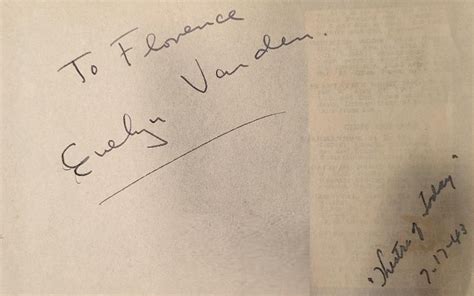 To Florence
Evelyn Varden.
"Theatre of Today"
7-17-43